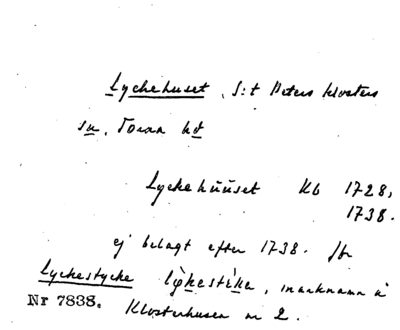 Lyckehuset, S:t Peters klosters
sn, Torna hd
Lyckehuuset Kb 1728,
1738.
ej belagt efter 1738. Jfr
Lyckestycke lỳkestìke, marknamn å
Nr 7838. Klosterhusen nr 2.